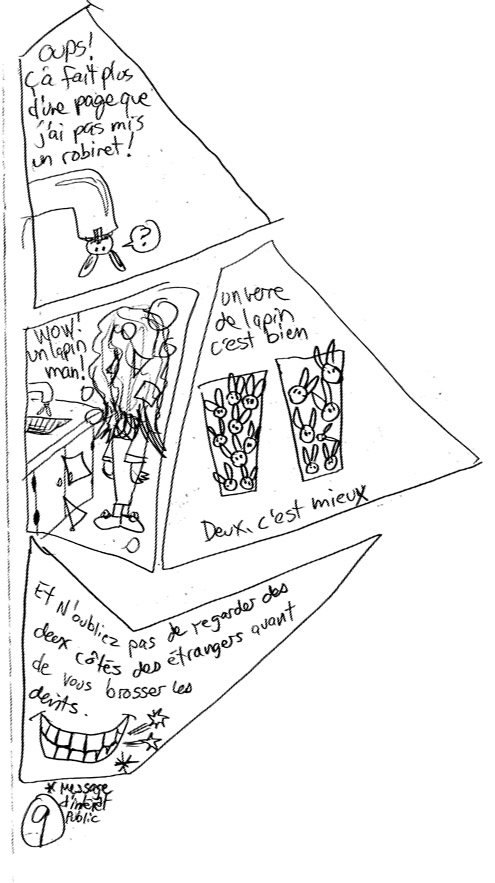 Oups!
Ça fait plus
d'une page que
j'ai pas mis
un robinet!
?
Wow!
un lapin
man!
un verre
de lapin
c'est bien
Deux, c'est mieux
Et N'oubliez pas de regarder des
deux côtés des étrangers avant
de vous brosser les
dents.
* Message
d'intérêt
Public
9